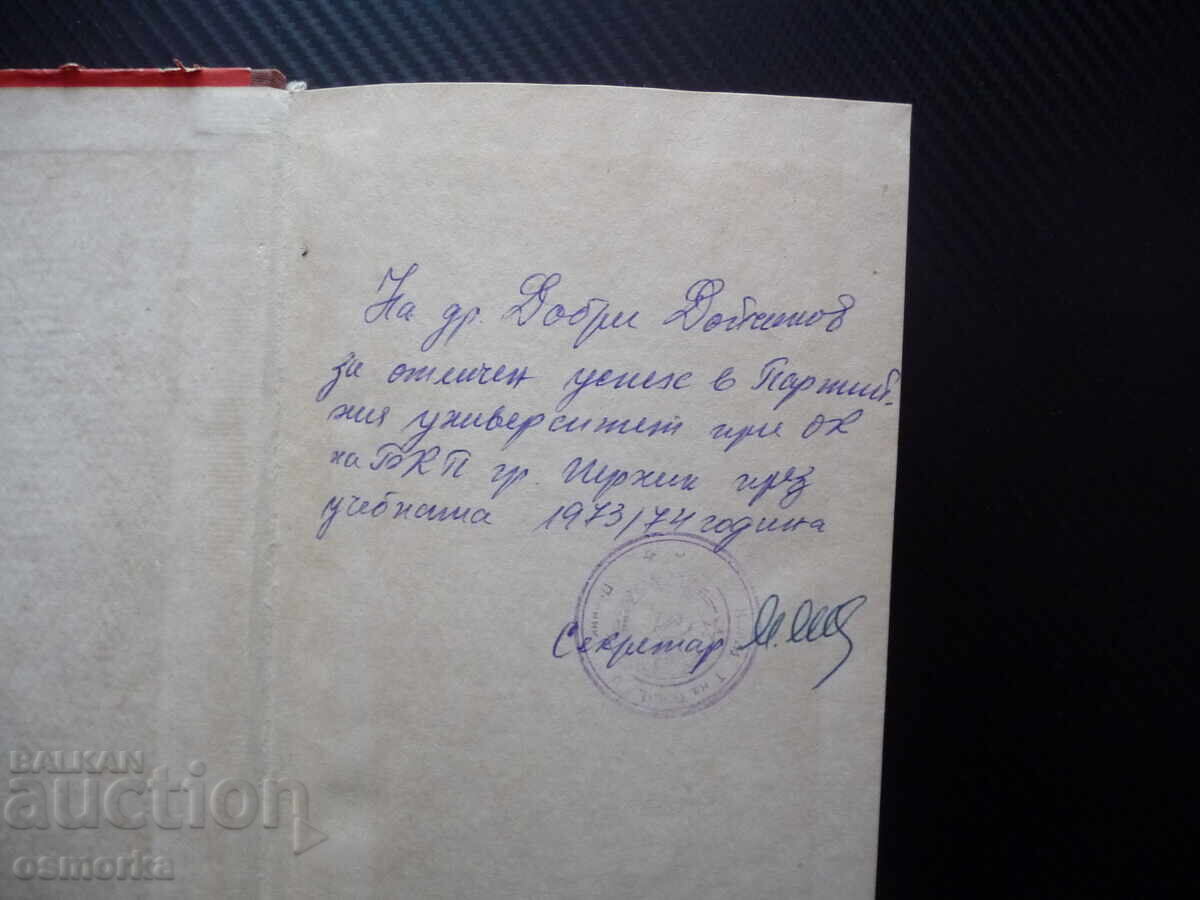 На др. Добри Дойчинов
за отличен успех в Партий-
ния университет при ОК
на БКП гр. Перник през
учебната 1973/74 година
Секретар
BALKAN
auction
osmorka